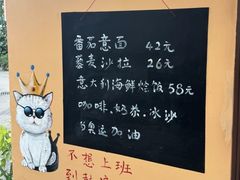 番茄意面 42元
藜麦沙拉 26元
意大利海鲜烩饭 58元
咖啡.奶茶.冰沙
为奥运加油
不想上班